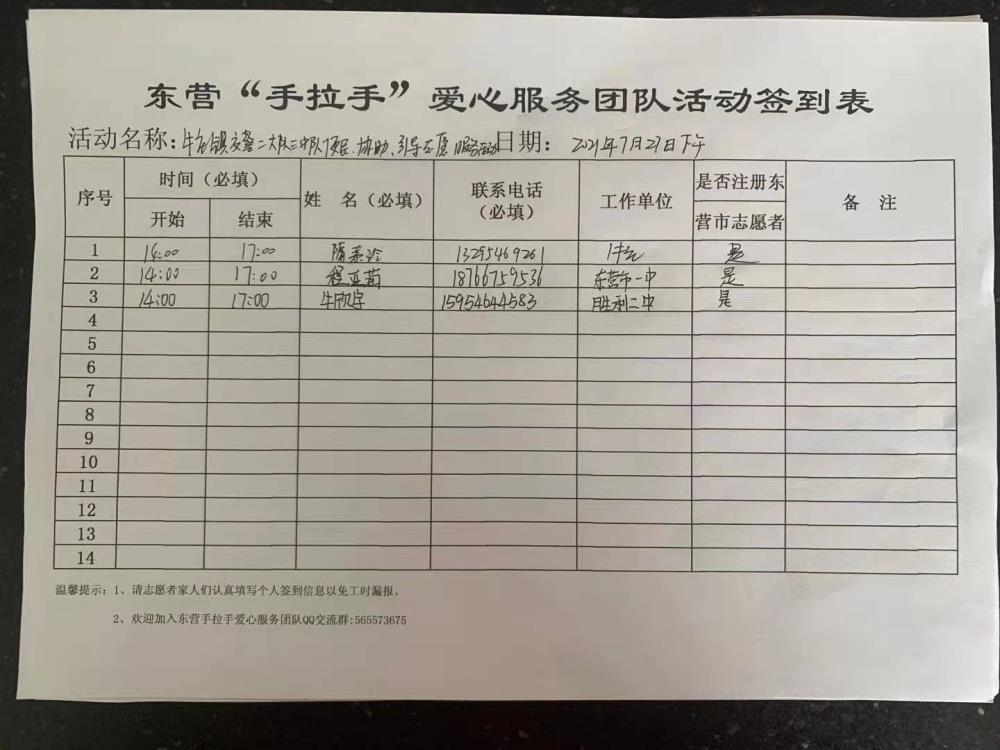 东营“手拉手”爱心服务团队活动签到表
活动名称：牛庄镇交警二大队三中队便民、协助、引导志愿服务活动 日期： 2021年7月27日下午
序号 时间（必填） 姓 名（必填） 联系电话（必填） 工作单位 是否注册东营市志愿者 备 注
开始 结束
1 14:00 17:00 13295469261 是
2 14:00 17:00 程亚茹 18766759536 东营市一中 是
3 14:00 17:00 牛欣宇 15954644583 胜利二中 是
4
5
6
7
8
9
10
11
12
13
14
温馨提示：1、请志愿者家人们认真填写个人签到信息以免工时漏报。
2、欢迎加入东营手拉手爱心服务团队QQ交流群:565573675